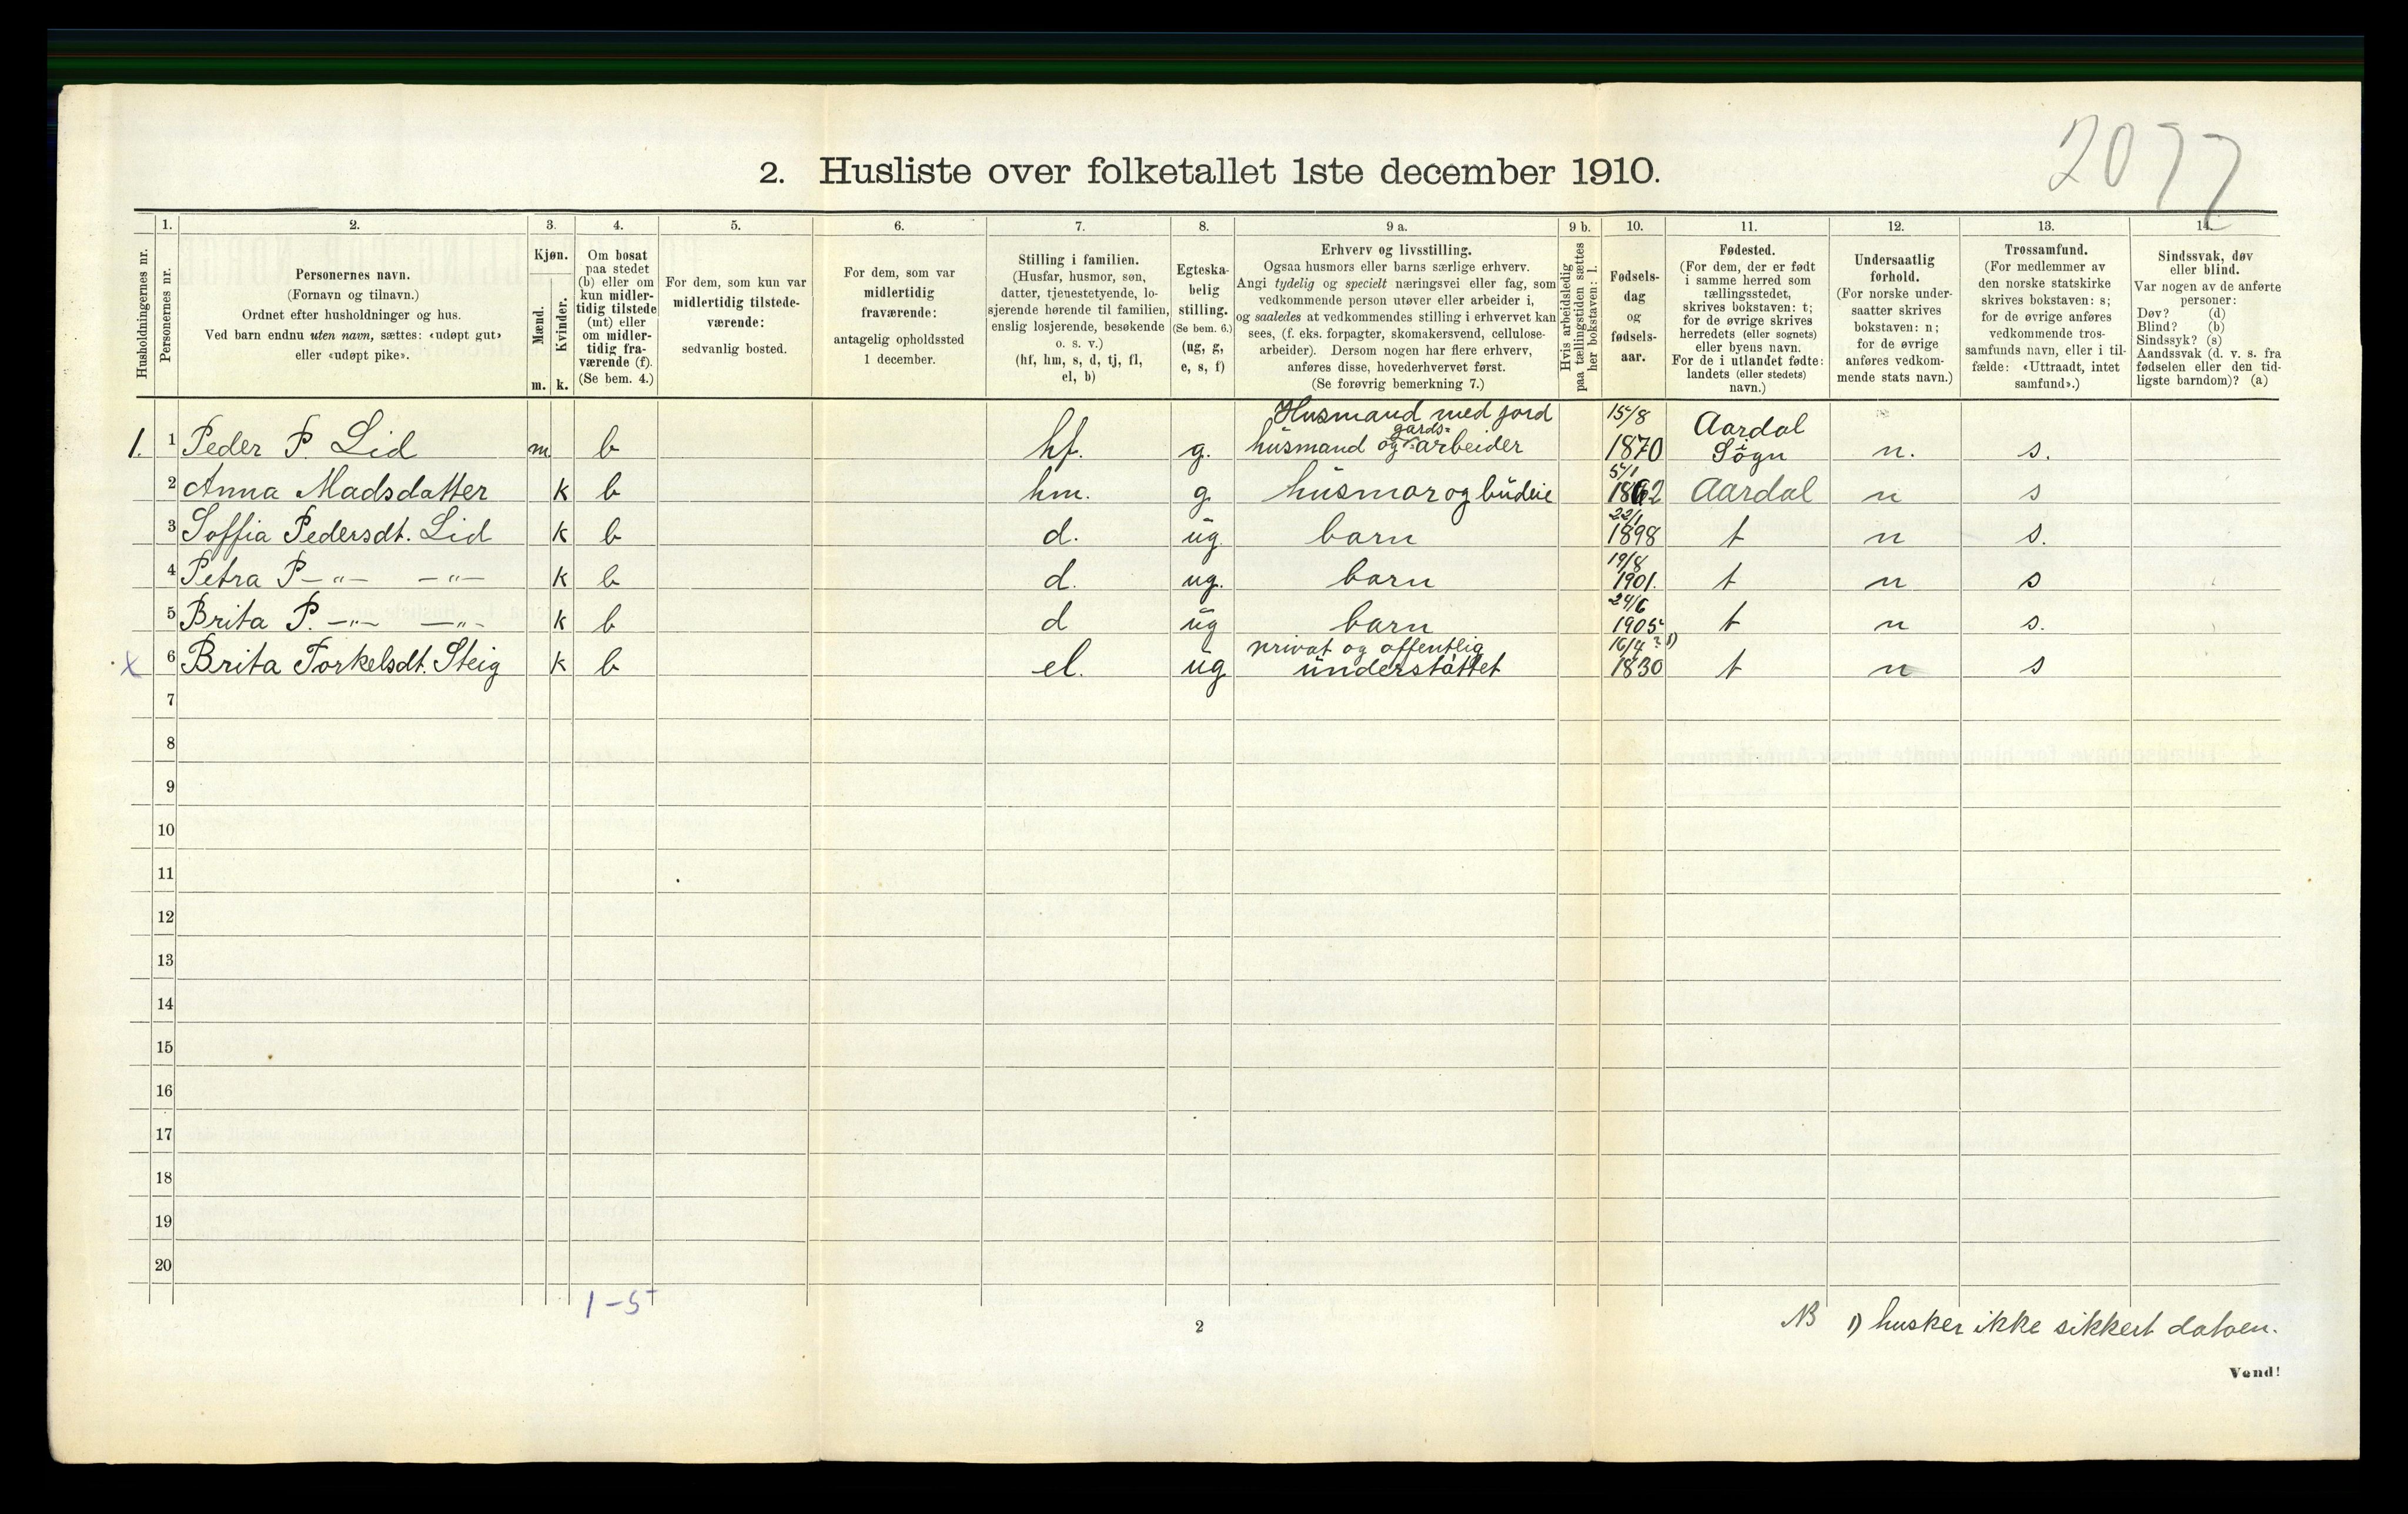 2077
2. Husliste over folketallet 1ste december 1910.
Husholdningernes nr.
1. Personernes nr.
2. Personernes navn.
(Fornavn og tilnavn.)
Ordnet efter husholdninger og hus.
Ved barn endnu uten navn, sættes: «udøpt gut»
eller «udøpt pike».
3. Kjøn.
Mænd. Kvinder.
m. k.
4. Om bosat
paa stedet
(b) eller om
kun midler-
tidig tilstede
(mt) eller
om midler-
tidig fra-
værende (f).
(Se bem. 4.)
5. For dem, som kun var
midlertidig tilstede-
værende:
sedvanlig bosted.
6. For dem, som var
midlertidig
fraværende:
antagelig opholdssted
1 december.
7. Stilling i familien.
(Husfar, husmor, søn,
datter, tjenestetyende, lo-
sjerende hørende til familien,
enslig losjerende, besøkende
o. s. v.)
(hf, hm, s, d, tj, fl,
el, b)
8. Egteska-
belig
stilling.
(Se bem. 6.)
(ug, g,
e, s, f)
9 a. Erhverv og livsstilling.
Ogsaa husmors eller barns særlige erhverv.
Angi tydelig og specielt næringsvei eller fag, som
vedkommende person utøver eller arbeider i,
og saaledes at vedkommendes stilling i erhvervet kan
sees, (f. eks. forpagter, skomakersvend, cellulose-
arbeider). Dersom nogen har flere erhverv,
anføres disse, hovederhvervet først.
(Se forøvrig bemerkning 7.)
9 b. Hvis arbeidsledig
paa tællingstiden sættes
her bokstaven: l.
10. Fødsels-
dag
og
fødsels-
aar.
11. Fødested.
(For dem, der er født
i samme herred som
tællingsstedet,
skrives bokstaven: t;
for de øvrige skrives
herredets (eller sognets)
eller byens navn.
For de i utlandet fødte:
landets (eller stedets)
navn.)
12. Undersaatlig
forhold.
(For norske under-
saatter skrives
bokstaven: n;
for de øvrige
anføres vedkom-
mende stats navn.)
13. Trossamfund.
(For medlemmer av
den norske statskirke
skrives bokstaven: s;
for de øvrige anføres
vedkommende tros-
samfunds navn, eller i til-
fælde: «Uttraadt, intet
samfund».)
14. Sindssvak, døv
eller blind.
Var nogen av de anførte
personer:
Døv? (d)
Blind? (b)
Sindssyk? (s)
Aandssvak (d. v. s. fra
fødselen eller den tid-
ligste barndom)? (a)
Husmand med jord 15/8
1. 1 Peder P. Lid m b hf. g. husmand og gards=arbeider 1870 Aardal i Sogn n. s.
2 Anna Madsdatter k b hm. g. husmor og budeie 5/1 1862 Aardal n s
3 Soffia Pedersdt. Lid k b d. ug. barn 22/1 1898 t n s.
4 Petra P–"– –"– k b d. ug. barn 19/8 1901. t n s
5 Brita P. –"– –"– k b d ug barn 24/6 1905 t n s.
privat og offentlig 16/4 ? 1)
x 6 Brita Torkelsdt. Steig k b el. ug understøttet 1830 t n s
7
8
9
10
11
12
13
14
15
16
17
18
19
20
1–5
2
NB 1) husker ikke sikkert datoen.
Vend!